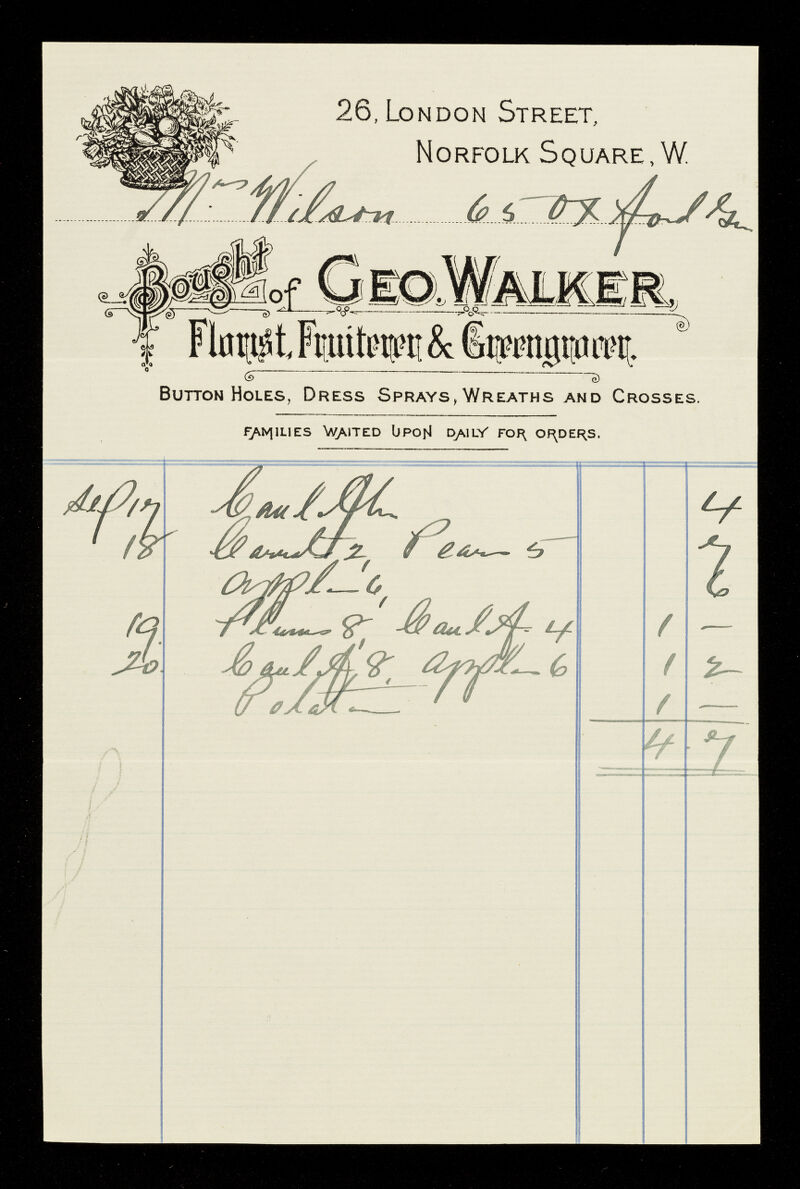 26, LONDON STREET,
NORFOLK SQUARE, W.
Mrs Wilson 65 Oxford
Bought of GEO. WALKER,
Florist, Fruiterer & Greengrocer.
BUTTON HOLES, DRESS SPRAYS, WREATHS AND CROSSES.
FAMILIES WAITED UPON DAILY FOR ORDERS.
Sep 17 Caulflr 4
18 Carrots 2, Pears 5 7
Apples 6, 6
19 Plums 8, Caulf. 4 1 —
20. Caulf, 8, Apples 6 1 2
Potatoes 1 —
4. 7